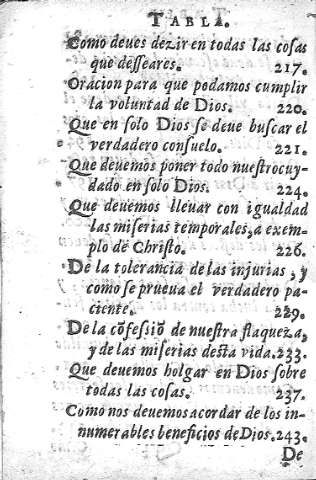 TABLA.
Como deues dezir en todas las cosas
que desseares. 217.
Oracion para que podamos cumplir
la voluntad de Dios. 220.
Que en solo Dios se deue buscar el
verdadero consuelo. 221.
Que deuemos poner todo nuestrocuy
dado en solo Dios. 224.
Que deuemos lleuar con igualdad
las miserias temporales, a exem-
plo de Christo. 226.
De la tolerancia de las injurias, y
como se prueua el verdadero pa-
ciente. 229.
De la cõfessiõ de nuestra flaqueza,
y de las miserias desta vida. 233.
Que deuemos holgar en Dios sobre
todas las cosas. 237.
Como nos deuemos acordar de los in-
numerables beneficios de Dios. 243.
De